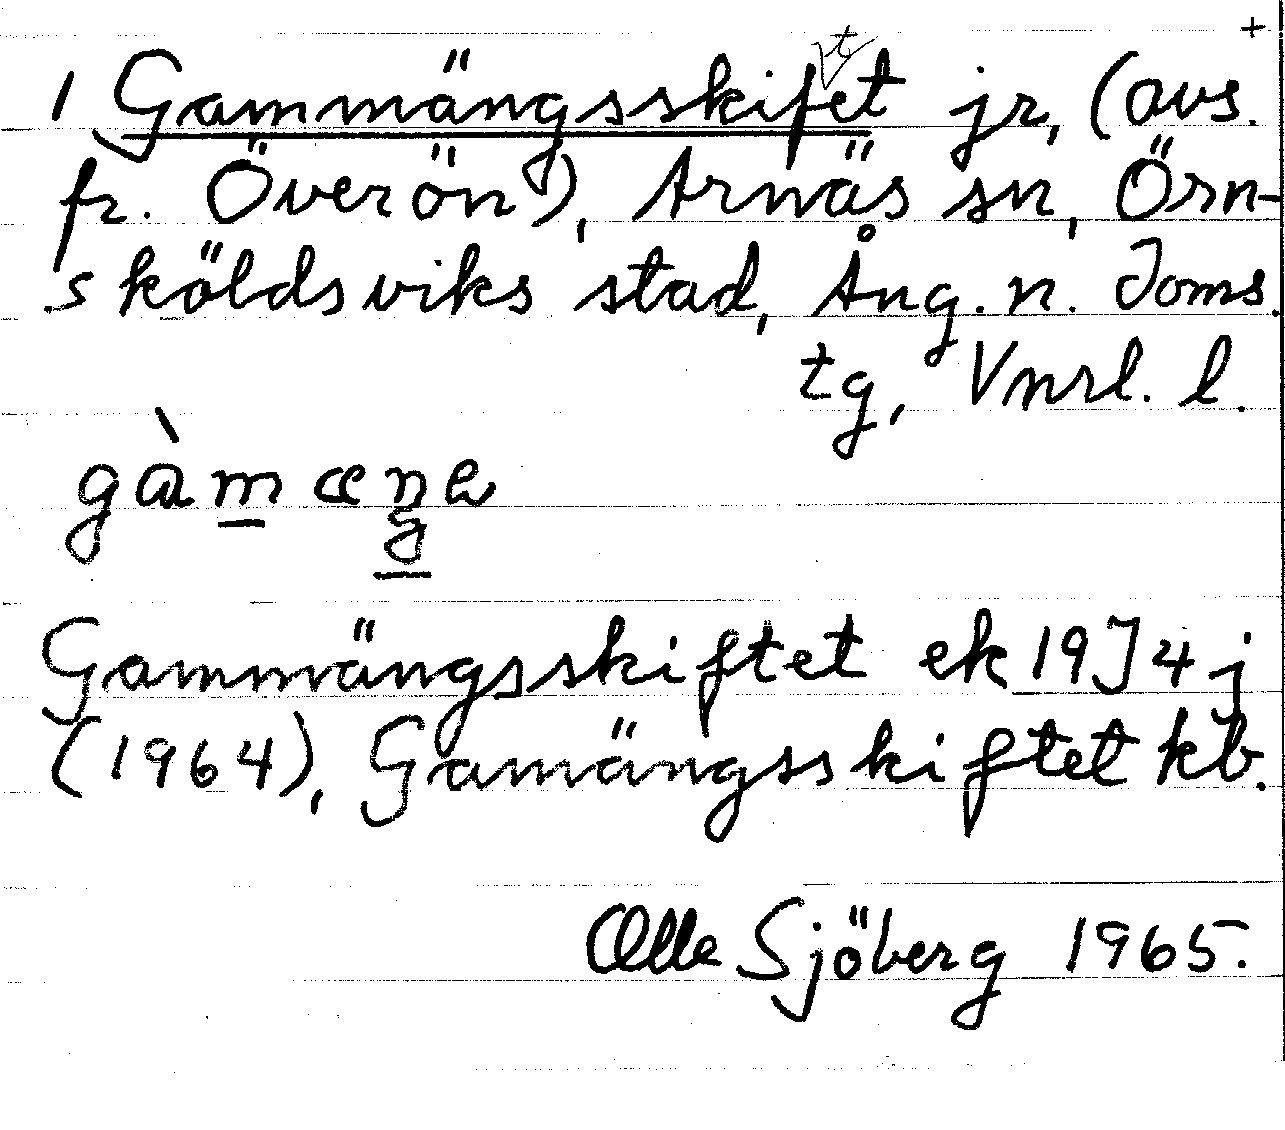 +
1 Gammängsskiftet jr, (avs.
fr. Överön), Arnäs sn, Örn-
sköldsviks stad, Ång. n. Doms.
tg, Vnrl. l.
gàmænge
Gammängsskiftet ek 19J4j
(1964), Gamängsskiftet kb.
Olle Sjöberg 1965.